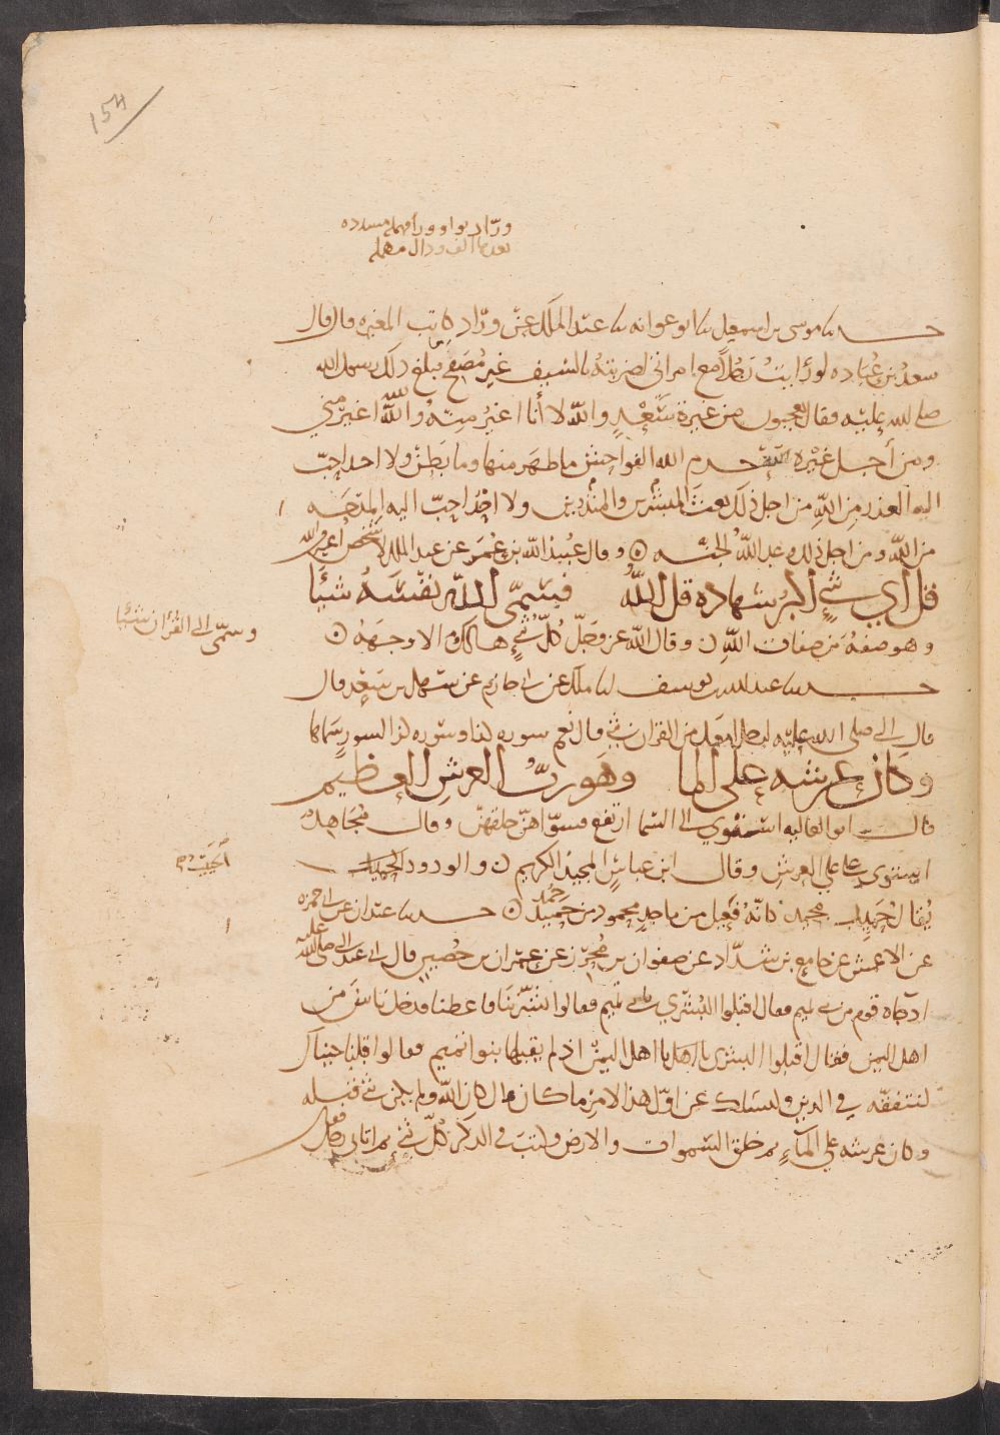 154
ورّاد بواو وراء مهملة مشددة
بعدها الف ودال مهملة
حدثنا موسى بن اسمعيل ثنا ابو عوانه ثنا عبد الملك عن ورّاد كاتب المغيره قال قال
سعد بن عُباده لو رأيتُ رَجُلاً مع امراتي لضربتهُ بالسيف غير مُصفِح فبلغ ذلك رسول الله
صلى الله عليه فقال تعجبون من غيرة سَعْدٍ والله لأنا اغيرُ منهُ والله اغيرُ مني
ومن أجل غيْرة الله حرم الله الفواحش ما ظهر منها وما بَطَن ولا احد احبّ
اليه العذر من الله من اجل ذلك بعث المبشرين والمنذرين ولا احدٌ احبّ اليه المدحه
من الله ومن اجل ذلك وعد الله الجنه وقال عُبيد الله بن عمَر عن عبد الملك لا شخص اغير من الله
قل اي شيءٍ اكبرُ شهاده قل الله فسَمّى الله نفسَهُ شيئا
وسمّى النبي القرآن شيئا
وهو صفهٌ من صفات الله وقال الله عز وجلّ كُلّ شيءٍ هالك الا وجهَهُ
حدثنا عبد الله بن يوسف انا ملك عن ابي حازم عن سهل بن سَعْد قال
قال النبي صلى الله عليه لرجل امعك من القران شي قال نعم سوره كذا وسوره كذا لسورٍ سَمّاها
وكان عرشه على الما وهو ربّ العرش العظيم
قال ابو العاليه استوى الى السما ارتفع فسوّاهنّ خلقهنّ وقال مُجاهد
استوى علا على العرش وقال ابن عباسٍ المجيدُ الكريم والودود الحبيب
الحبيب
يُقال حميد مجيد كانّهُ فَعيل من ماجدٍ محمود من حَميد حَمِد حدثنا عبدان عن ابي حمزه
عن الاعمش عن جامع بن شدّاد عن صفوان بن مُحرز عن عمران بن حُصينٍ قال اني عند النبي صلى الله عليه
اذ جاه قوم من بني تميم فقال اقبلوا البُشرى يا بني تميم فقالوا بشّرتنا فاعطنا فدخل ناسٌ من
اهل اليمن فقال اقبلوا البشرى يا اهل اليمن اذ لم يقبلها بنوا تميم فقالوا قبلنا جيناك
لنتفقّه في الدين ولنسئلك عن اوّل هذا الامر ما كان قال كان الله ولم يكن شي قبله
وكان عرشه على الماءٍ ثم خلق السموات والارض وكتب في الذكر كلّ شي ثم اتاني رجل فقال